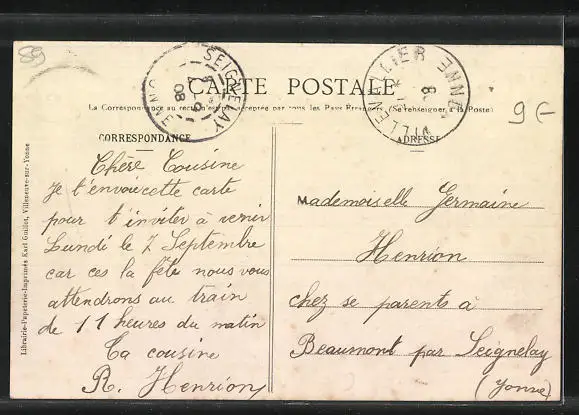 89
CARTE POSTALE
La Correspondance au recto n'est pas acceptée par tous les Pays Etrangers (Se renseigner à la Poste)
CORRESPONDANCE
ADRESSE
SEIGNELAY
YONNE
08
VILLEVALLIER
YONNE
9€
Librairie-Papeterie-Imprimés Karl Guillot, Villeneuve-sur-Yonne
Chère Cousine
Je t'envoie cette carte
pour t'inviter à venir
Lundi le 7 Septembre
car ces la fête nous vous
attendrons au train
de 11 heures du matin
Ta cousine
R. Henrion
Mademoiselle Germaine
Henrion
chez se parents à
Beaumont par Seignelay
(Yonne)